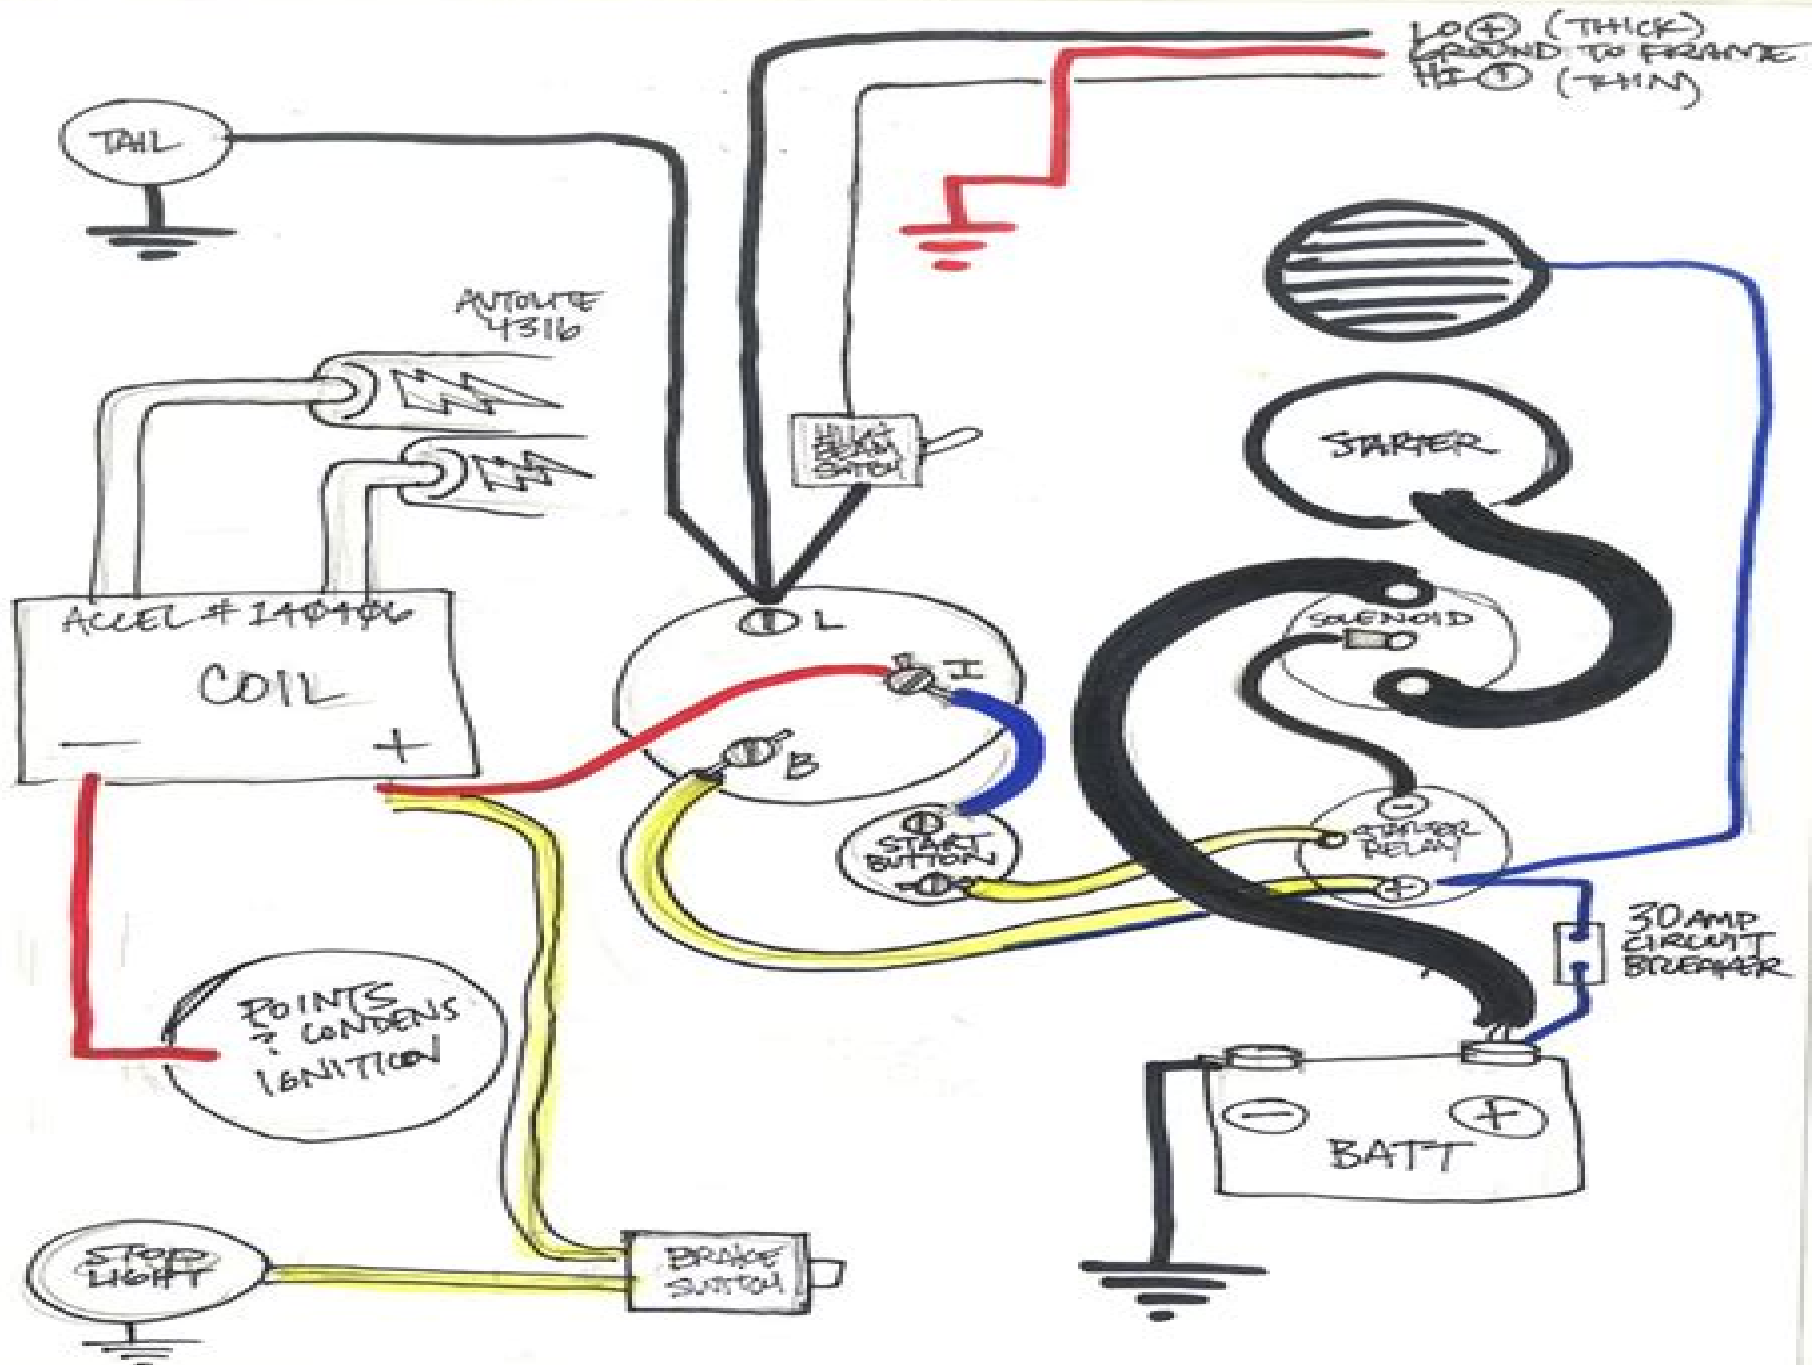 LO + (THICK)
GROUND TO FRAME
HI + (THIN)
TAIL
AUTOLITE
4316
STARTER
ACCEL # 140406
COIL
- +
L
I
B
SOLENOID
START
BUTTON
-
STARTER
RELAY
+
30 AMP
CIRCUIT
BREAKER
POINTS
? CONDENS
IGNITION
- +
BATT
STOP
LIGHT
BRAKE
SWITCH